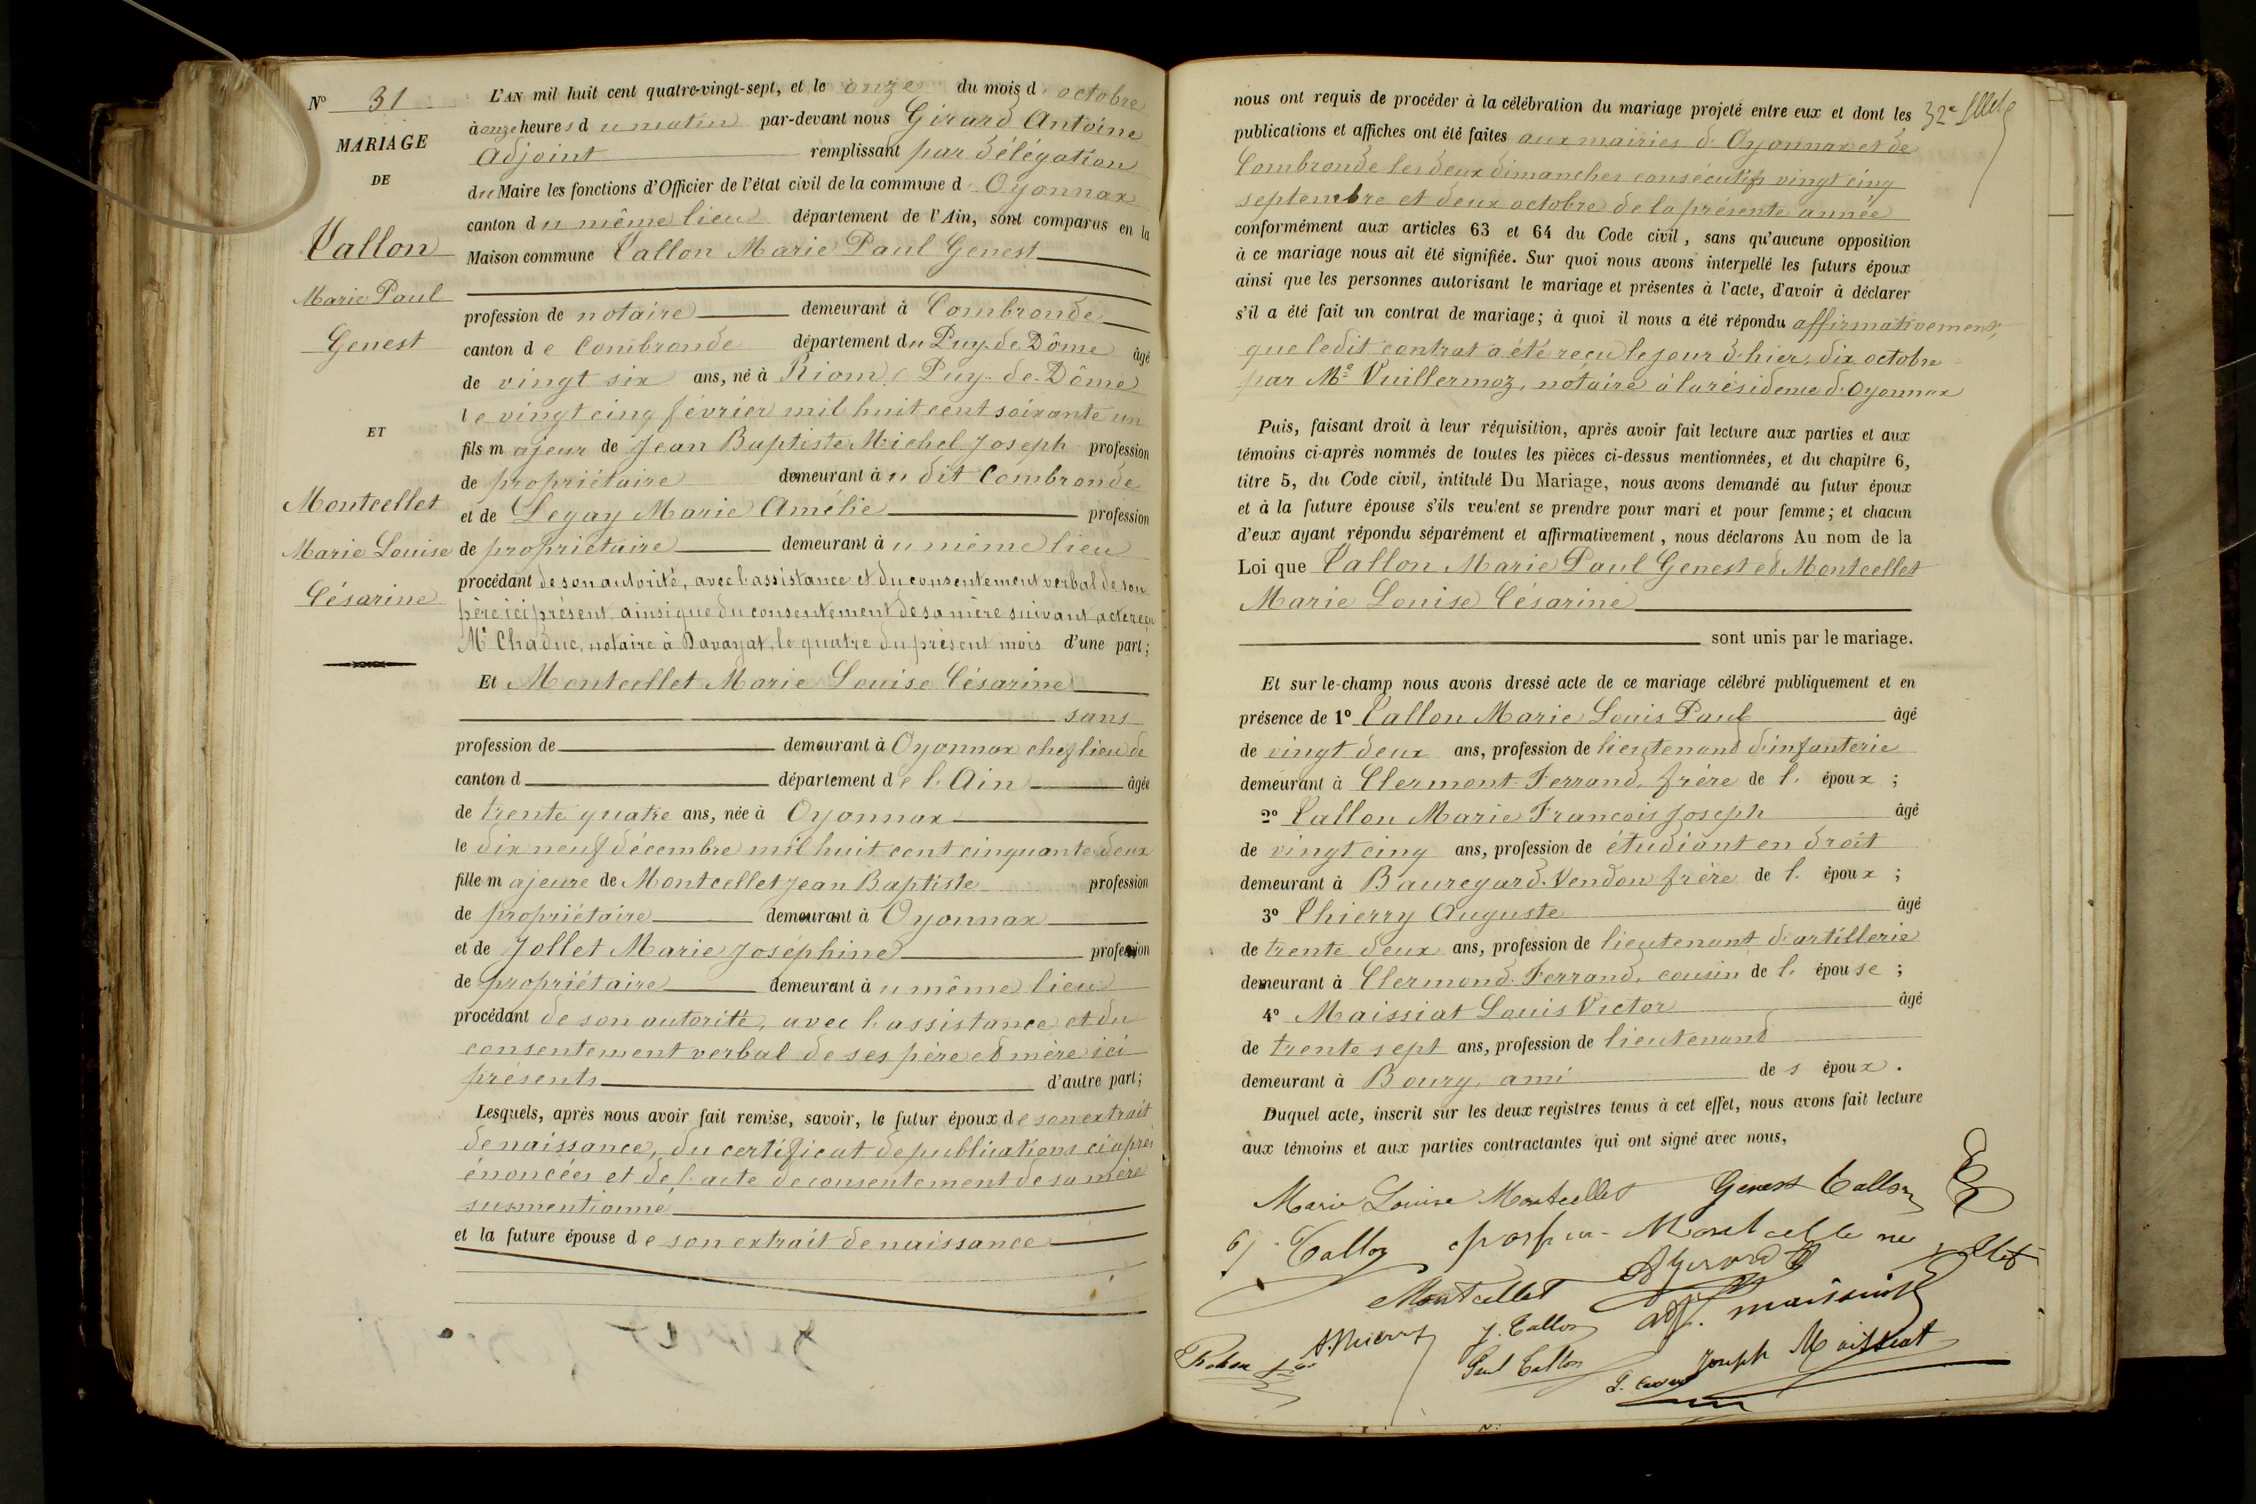 N° 31
MARIAGE
DE
Tallon
Marie Paul
Genest
ET
Montcellet
Marie Louise
Césarine
L'AN mil huit cent quatre-vingt-sept, et le onze du mois d'octobre
à onze heures du matin par-devant nous Girard Antoine
Adjoint remplissant par délégation
du Maire les fonctions d'Officier de l'état civil de la commune d'Oyonnax
canton du même lieu département de l'Ain, sont comparus en la
Maison commune Tallon Marie Paul Genest
profession de notaire demeurant à Combronde
canton de Combronde département du Puy-de-Dôme âgé
de vingt six ans, né à Riom, Puy-de-Dôme
le vingt cinq février mil huit cent soixante un
fils majeur de Jean Baptiste Michel Joseph profession
de propriétaire demeurant au dit Combronde
et de Legay Marie Amélie profession
de propriétaire demeurant au même lieu
procédant de son autorité, avec l'assistance et du consentement verbal de son
père ici présent, ainsi que du consentement de sa mère suivant acte reçu
Me Chaduc, notaire à Davayat, le quatre du présent mois d'une part;
Et Montcellet Marie Louise Césarine
sans
profession de demeurant à Oyonnax chef lieu de
canton d département de l'Ain âgée
de trente quatre ans, née à Oyonnax
le dix neuf décembre mil huit cent cinquante deux
fille majeure de Montcellet Jean Baptiste profession
de propriétaire demeurant à Oyonnax
et de Jollet Marie Joséphine profession
de propriétaire demeurant au même lieu
procédant de son autorité, avec l'assistance et du
consentement verbal de ses père et mère ici
présents d'autre part;
Lesquels, après nous avoir fait remise, savoir, le futur époux de son extrait
de naissance, du certificat de publications ci après
énoncées et de l'acte de consentement de sa mère
susmentionné
et la future épouse de son extrait de naissance
32e
nous ont requis de procéder à la célébration du mariage projeté entre eux et dont les
publications et affiches ont été faites aux mairies d'Oyonnax et de
Combronde les deux dimanches consécutifs vingt cinq
septembre et deux octobre de la présente année
conformément aux articles 63 et 64 du Code civil, sans qu'aucune opposition
à ce mariage nous ait été signifiée. Sur quoi nous avons interpellé les futurs époux
ainsi que les personnes autorisant le mariage et présentes à l'acte, d'avoir à déclarer
s'il a été fait un contrat de mariage; à quoi il nous a été répondu affirmativement,
que ledit contrat a été reçu le jour d'hier, dix octobre
par Me Vuillermoz, notaire à la résidence d'Oyonnax
Puis, faisant droit à leur réquisition, après avoir fait lecture aux parties et aux
témoins ci-après nommés de toutes les pièces ci-dessus mentionnées, et du chapitre 6,
titre 5, du Code civil, intitulé Du Mariage, nous avons demandé au futur époux
et à la future épouse s'ils veulent se prendre pour mari et pour femme; et chacun
d'eux ayant répondu séparément et affirmativement, nous déclarons Au nom de la
Loi que Tallon Marie Paul Genest et Montcellet
Marie Louise Césarine
sont unis par le mariage.
Et sur-le-champ nous avons dressé acte de ce mariage célébré publiquement et en
présence de 1° Tallon Marie Louis Paul âgé
de vingt deux ans, profession de lieutenant d'infanterie
demeurant à Clermont-Ferrand, frère de l'époux;
2° Tallon Marie François Joseph âgé
de vingt cinq ans, profession de étudiant en droit
demeurant à Bauregard-Vendon frère de l'époux;
3° Thierry Auguste âgé
de trente deux ans, profession de lieutenant d'artillerie
demeurant à Clermond-Ferrand, cousin de l'épouse;
4° Maissiat Louis Victor âgé
de trente sept ans, profession de lieutenand
demeurant à Bourg, ami des époux.
Duquel acte, inscrit sur les deux registres tenus à cet effet, nous avons fait lecture
aux témoins et aux parties contractantes qui ont signé avec nous,
Marie Louise Montcellet Genest Tallon
Tallon Montcellet née Jollet
Montcellet AGirard
adj. Maissiat
A. Thierry J. Tallon
Paul Tallon Joseph Maissiat